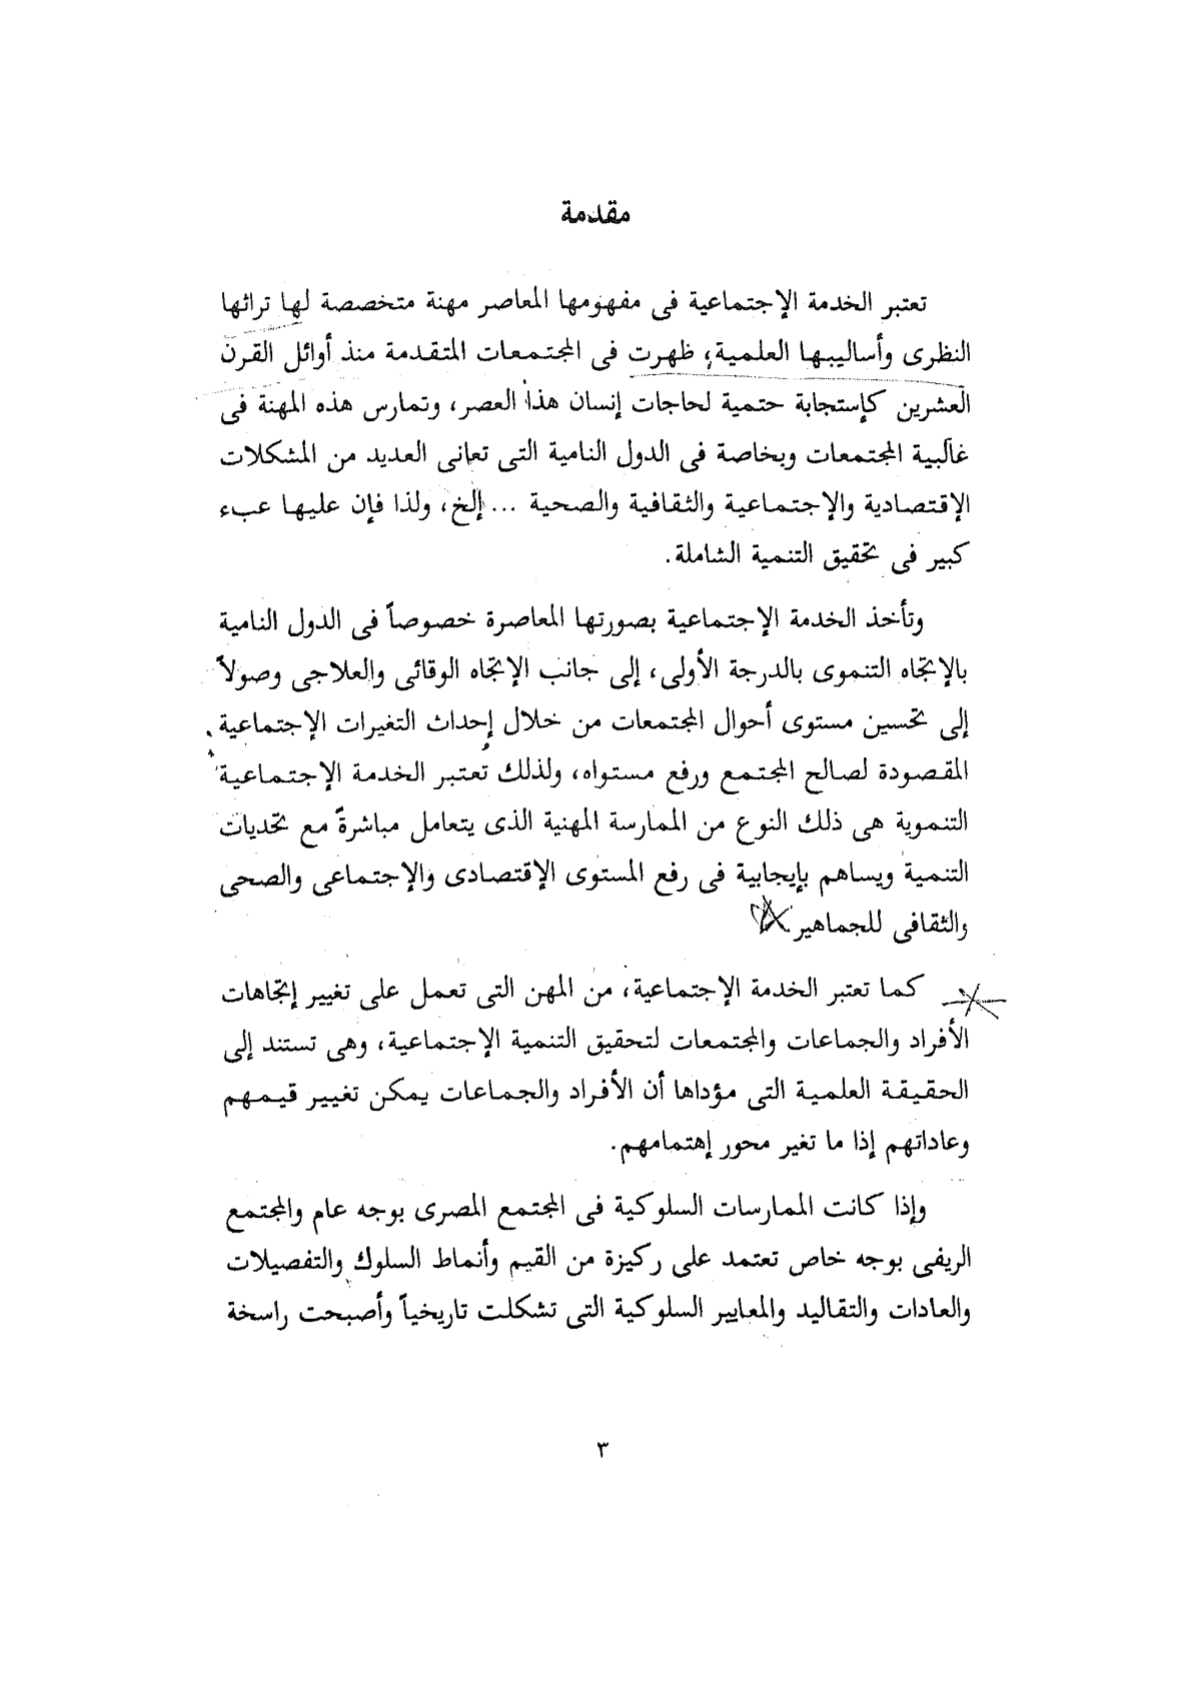 مقدمة
تعتبر الخدمة الإجتماعية فى مفهومها المعاصر مهنة متخصصة لها تراثها
النظرى وأساليبها العلمية، ظهرت فى المجتمعات المتقدمة منذ أوائل القرن
العشرين كإستجابة حتمية لحاجات إنسان هذا العصر، وتمارس هذه المهنة فى
غالبية المجتمعات وبخاصة فى الدول النامية التى تعانى العديد من المشكلات
الإقتصادية والإجتماعية والثقافية والصحية ... إلخ، ولذا فإن عليها عبء
كبير فى تحقيق التنمية الشاملة.
وتأخذ الخدمة الإجتماعية بصورتها المعاصرة خصوصاً فى الدول النامية
بالإتجاه التنموى بالدرجة الأولى، إلى جانب الإتجاه الوقائى والعلاجى وصولاً
إلى تحسين مستوى أحوال المجتمعات من خلال إحداث التغيرات الإجتماعية
المقصودة لصالح المجتمع ورفع مستواه، ولذلك تعتبر الخدمة الإجتماعية
التنموية هى ذلك النوع من الممارسة المهنية الذى يتعامل مباشرةً مع تحديات
التنمية ويساهم بإيجابية فى رفع المستوى الإقتصادى والإجتماعى والصحى
والثقافى للجماهير.
كما تعتبر الخدمة الإجتماعية، من المهن التى تعمل على تغيير إتجاهات
الأفراد والجماعات والمجتمعات لتحقيق التنمية الإجتماعية، وهى تستند إلى
الحقيقة العلمية التى مؤداها أن الأفراد والجماعات يمكن تغيير قيمهم
وعاداتهم إذا ما تغير محور إهتمامهم.
وإذا كانت الممارسات السلوكية فى المجتمع المصرى بوجه عام والمجتمع
الريفى بوجه خاص تعتمد على ركيزة من القيم وأنماط السلوك والتفصيلات
والعادات والتقاليد والمعايير السلوكية التى تشكلت تاريخياً وأصبحت راسخة
٣